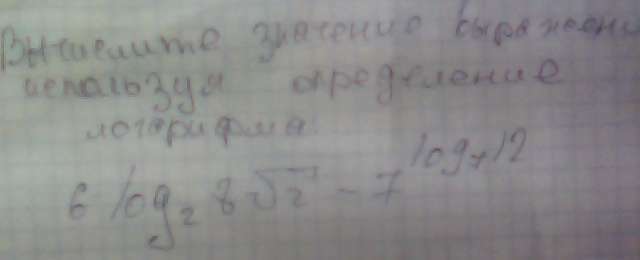 Вычислите значение выражени
используя определение
логарифма:
6 log₂ 8√2 − 7^log₇12